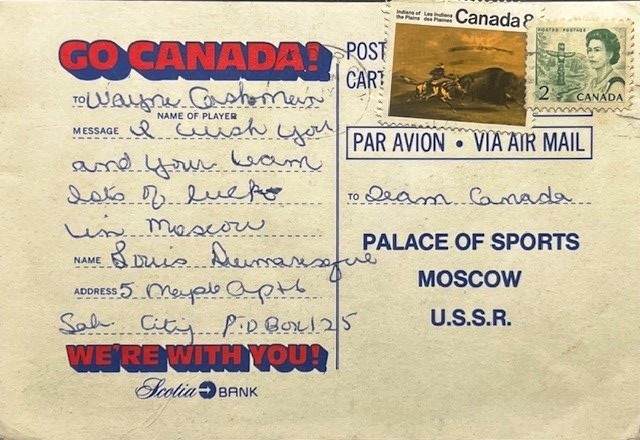 GO CANADA!
TO Wayne Cashman
NAME OF PLAYER
MESSAGE I wish you
and your team
lots of luck
in Moscow
NAME Louis Dumaresque
ADDRESS 5 Maple Apts
City P.O Box 125
WE'RE WITH YOU!
Scotia BANK
POST
CART
Indians of the Plains Les Indiens des Plaines Canada 8
POSTES POSTAGE
2 CANADA
PAR AVION • VIA AIR MAIL
TO Team Canada
PALACE OF SPORTS
MOSCOW
U.S.S.R.